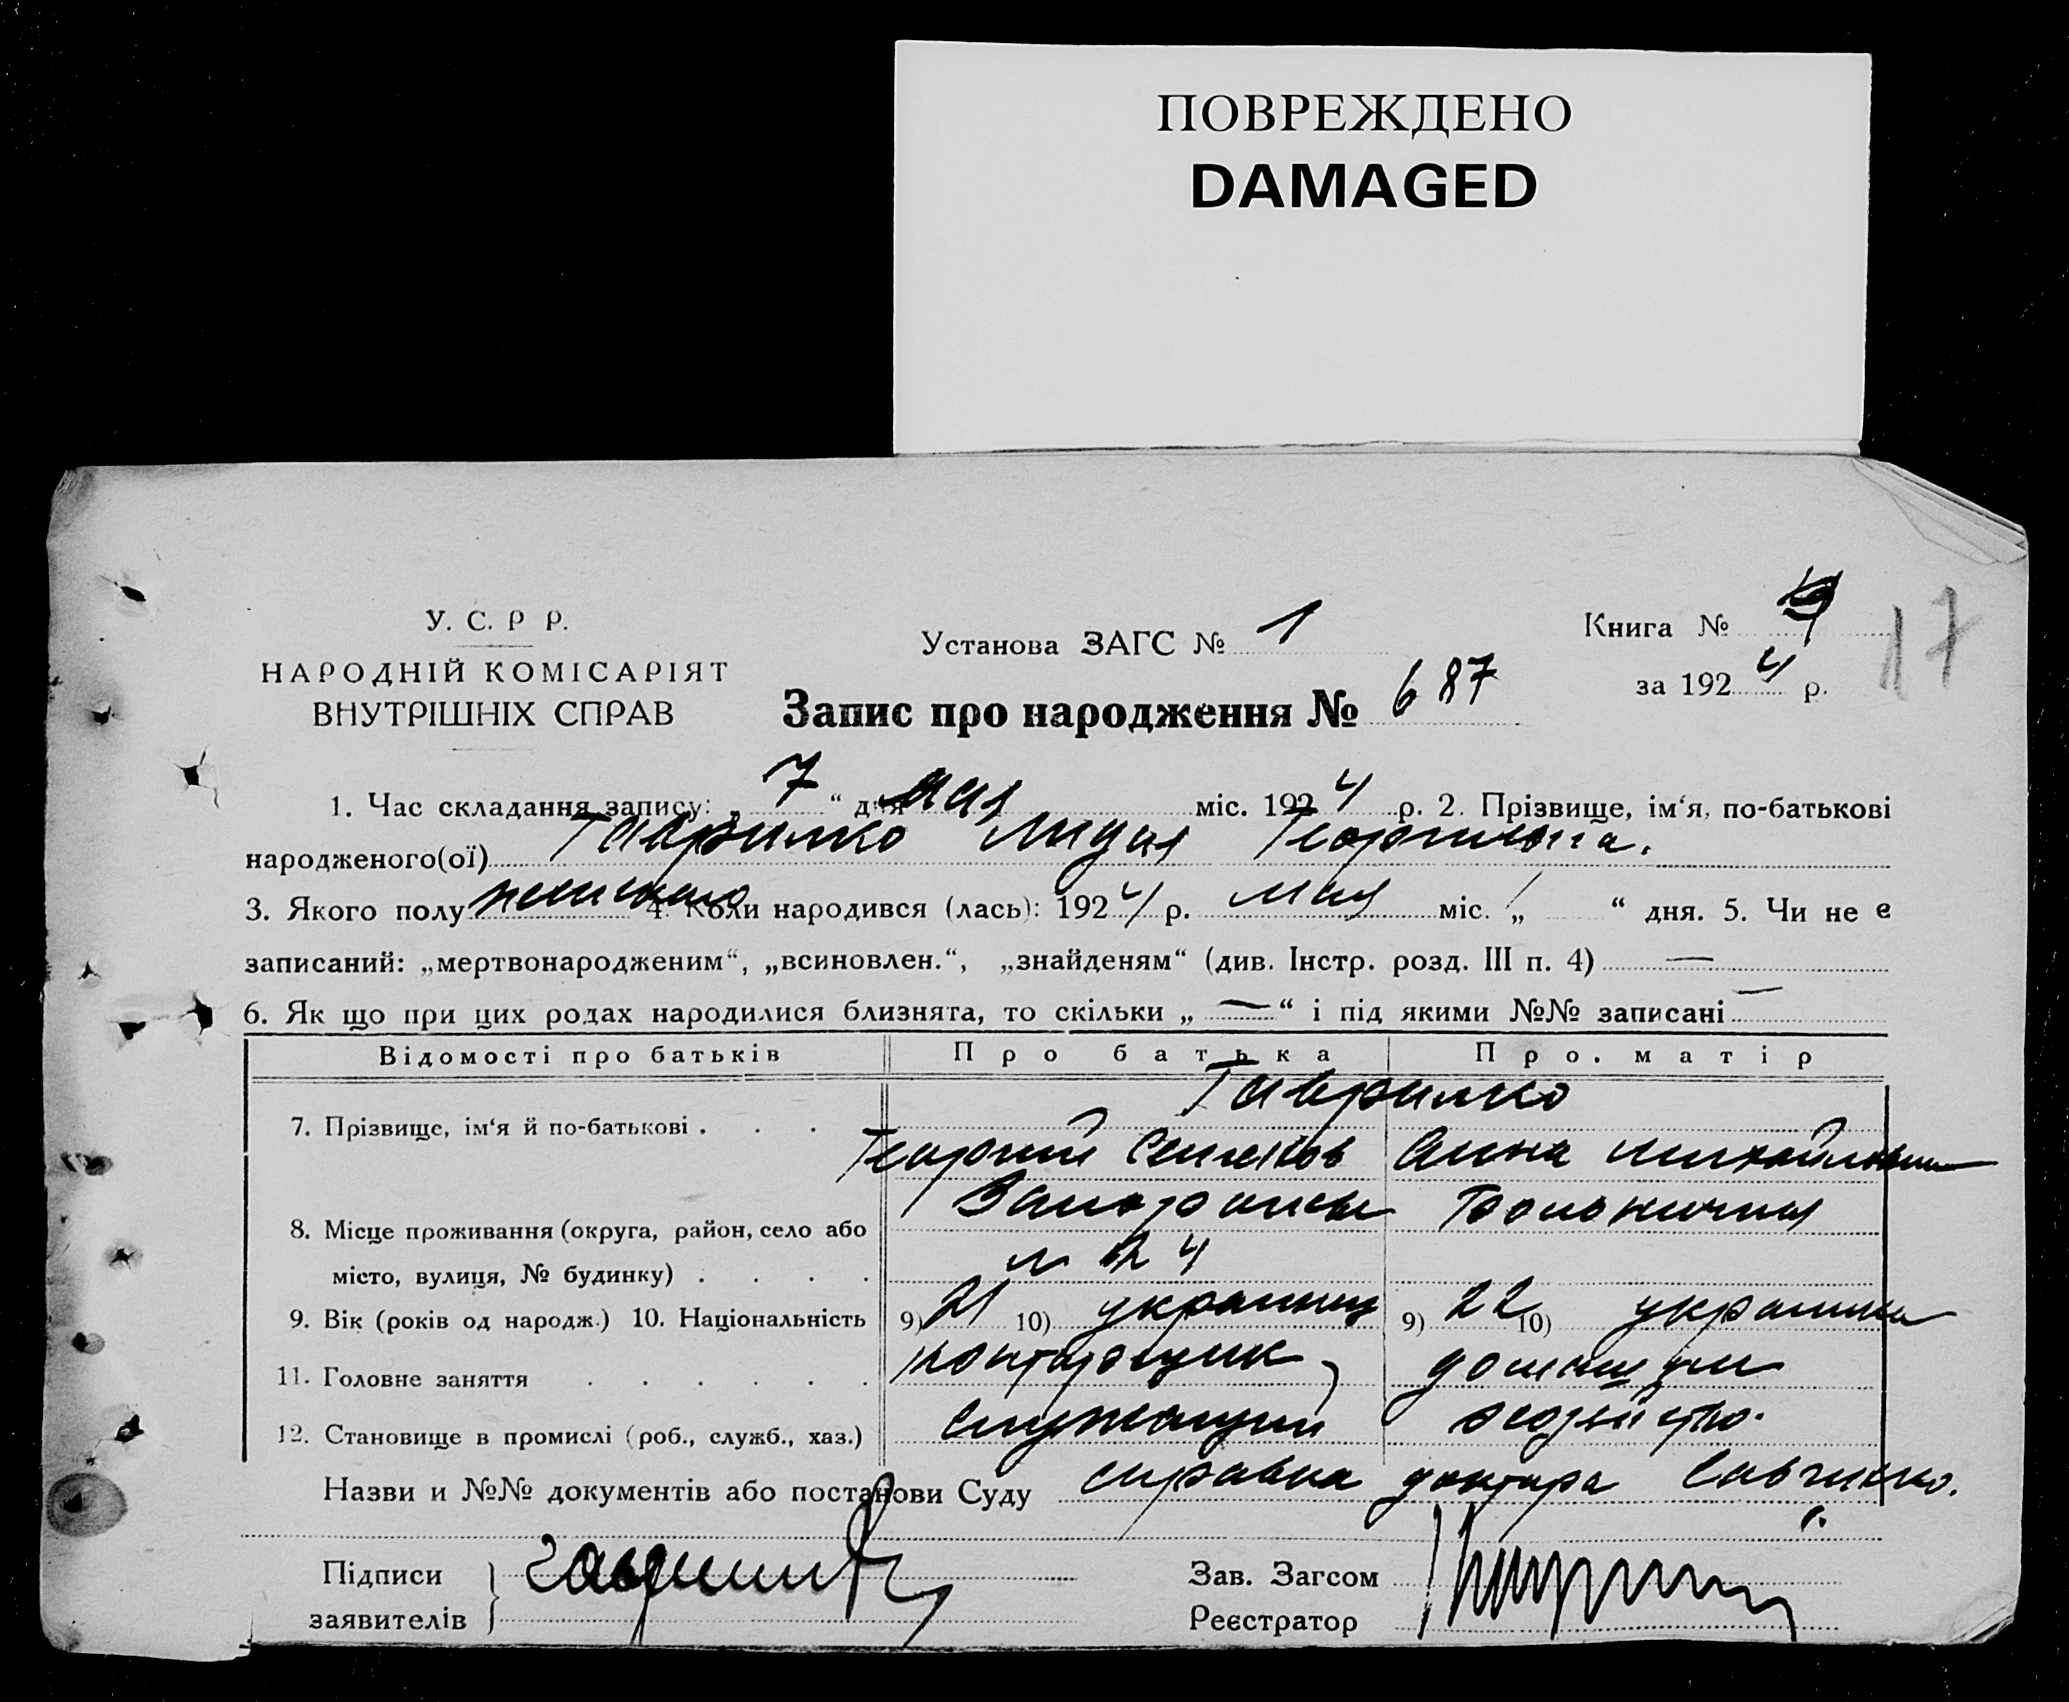 ПОВРЕЖДЕНО
DAMAGED
У. С. Р Р.
НАРОДНІЙ КОМІСАРІЯТ
ВНУТРІШНІХ СПРАВ
Установа ЗАГС № 1
Запис про народження № 687
Книга №
за 1924 р.
17
1. Час складання запису: „ 7 “ дня мая міс. 1924 р. 2. Прізвище, ім‘я, по-батькові
народженого(ої) Гаврилко Лидия Георгиевна.
3. Якого полу женского 4. Коли народився (лась): 1924 р. мая міс. „ 1 “ дня. 5. Чи не є
записаний: „мертвонародженим“, „всиновлен.“, „знайденям“ (див. Інстр. розд. III п. 4) —
6. Як що при цих родах народилися близнята, то скільки „ — “ і під якими №№ записані —
Відомості про батьків Про батька Про. матір
Гаврилко
7. Прізвище, ім‘я й по-батькові . . .
Георгий Семенов Анна Михайловна
8. Місце проживання (округа, район, село або
місто, вулиця, № будинку) . . . .
9. Вік (років од народж.) 10. Національність 9) 21 10) украинец 9) 22 10) украинка
11. Головне заняття . . . . . . конторщик, домашн
12. Становище в промислі (роб., служб., хаз.) служащий хозяйство.
Назви и №№ документів або постанови Суду справка доктора Савченко.
Підписи
заявителів
Зав. Загсом
Реєстратор